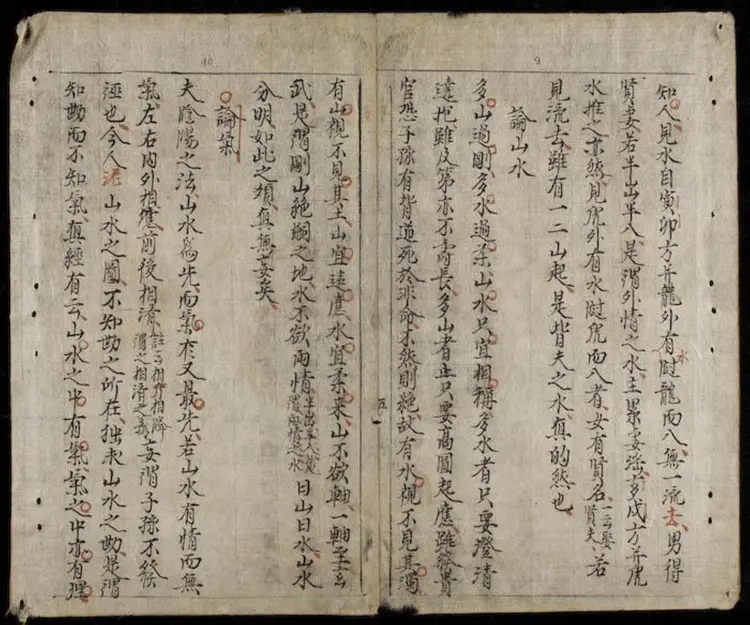 9
知人見水自寅卯方并龍外有水隨龍而入無一流去男得
賢妻若半出半入是謂外情之水主累妻淫多戌方并虎
水推之亦然見虎外有水隨虎而入者女有賢名一云娶賢夫若
見流去雖有一二山起是皆夫之水真的然也
論山水
多山過剛多水過柔山水只宜相稱多水者只要澄清
遠抱雖反第亦不壽長多山者止只要高圓起應雖發貴
官恐子孫有背逆死於非命不然則絕故有水觀不見其濁
五
10
有山觀不見其土山宜遠應水宜柔來山不欲軸一軸至玄
武是謂剛山絕嗣之地水不欲兩情半出半入謂兩情之水曰山曰水山水
分明如此之類真無妄矣
論氣
夫陰陽之法山水為先而氣在又最先若山水有情而無
氣左右內外相應前後相濟註云相相降謂之相濟之義妄謂子孫不發
逕也今人泥山水之圖不知勘之所在拙夫山水之勘是謂
知勘而不知氣真經有云山水之中有氣氣之中亦有理